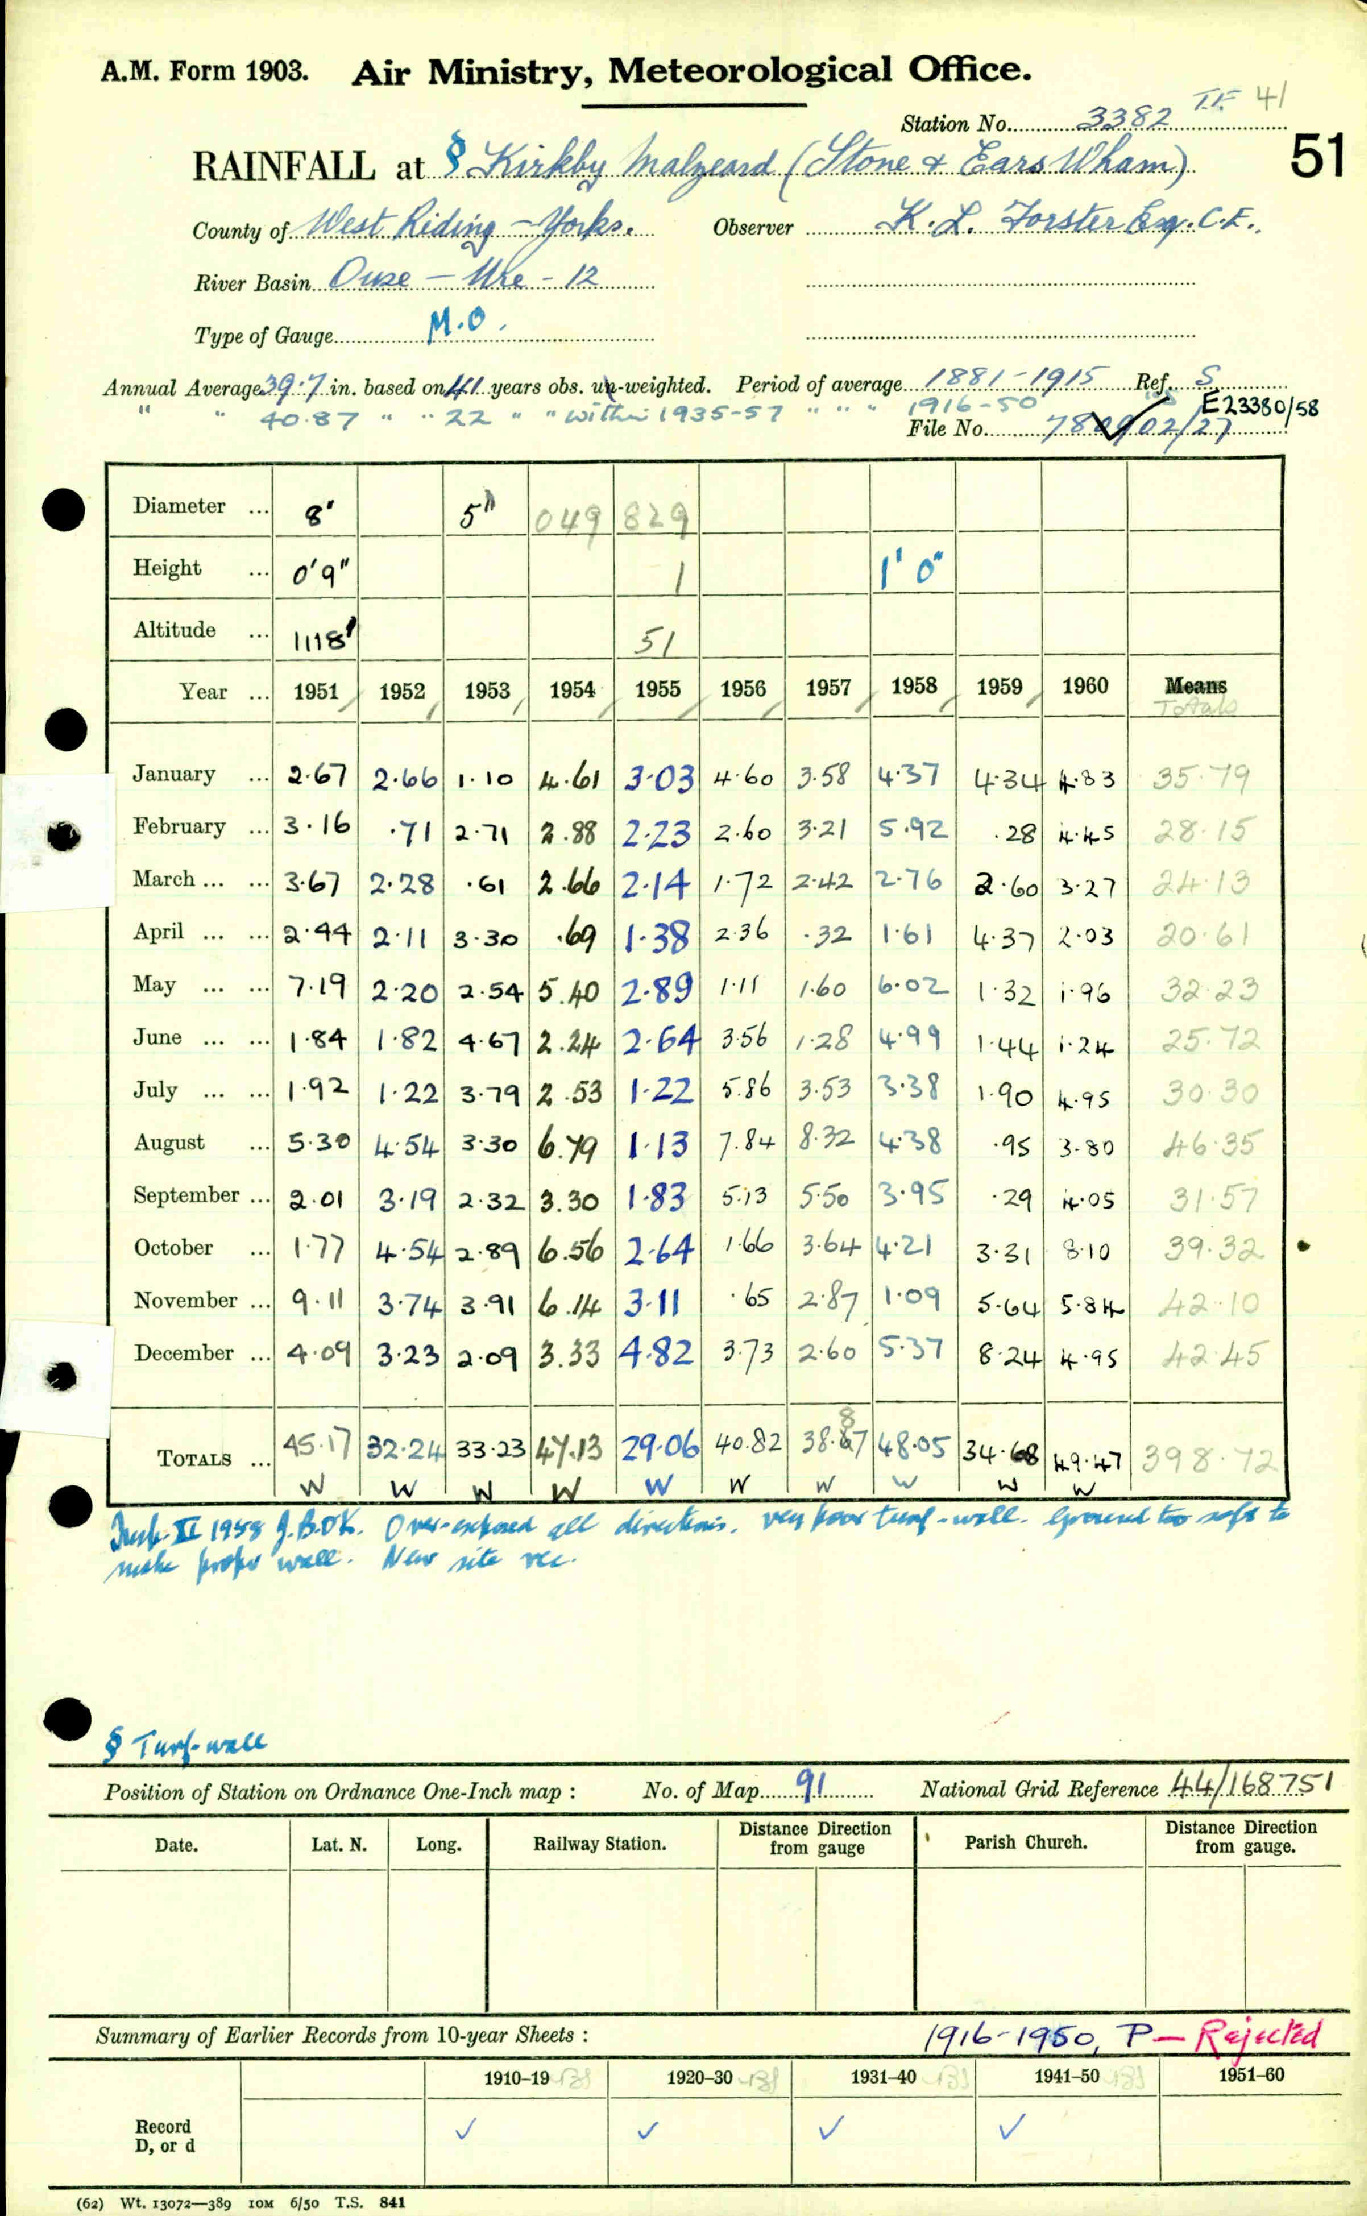 A.M. Form 1903. Air Ministry, Meteorological Office.
Station No. 3382 41
51
RAINFALL at § Kirkby Malzeard (Stone & Ears Wham)
County of West Riding - Yorks. Observer K. L. Forster Esq. C.E.
River Basin Ouse - Ure - 12
Type of Gauge M.O.
Annual Average 39.7 in. based on 41 years obs. un-weighted. Period of average 1881-1915 Ref. S
" " 40.87 " " 22 " " within 1935-57 " " " 1916-50 E23380/58
File No. 780902/27
Diameter ... 8" 5" 049 829
Height ... 0'9" 1 1' 0"
Altitude ... 1118' 51
Year ... 1951 1952 1953 1954 1955 1956 1957 1958 1959 1960 Means
Totals
January ... 2.67 2.66 1.10 4.61 3.03 4.60 3.58 4.37 4.34 4.83 35.79
February ... 3.16 .71 2.71 2.88 2.23 2.60 3.21 5.92 .28 4.45 28.15
March ... ... 3.67 2.28 .61 2.66 2.14 1.72 2.42 2.76 2.60 3.27 24.13
April ... ... 2.44 2.11 3.30 .69 1.38 2.36 .32 1.61 4.37 2.03 20.61
May ... ... 7.19 2.20 2.54 5.40 2.89 1.11 1.60 6.02 1.32 1.96 32.23
June ... ... 1.84 1.82 4.67 2.24 2.64 3.56 1.28 4.99 1.44 1.24 25.72
July ... ... 1.92 1.22 3.79 2.53 1.22 5.86 3.53 3.38 1.90 4.95 30.30
August ... 5.30 4.54 3.30 6.79 1.13 7.84 8.32 4.38 .95 3.80 46.35
September ... 2.01 3.19 2.32 3.30 1.83 5.13 5.50 3.95 .29 4.05 31.57
October ... 1.77 4.54 2.89 6.56 2.64 1.66 3.64 4.21 3.31 8.10 39.32
November ... 9.11 3.74 3.91 6.14 3.11 .65 2.87 1.09 5.64 5.84 42.10
December ... 4.09 3.23 2.09 3.33 4.82 3.73 2.60 5.37 8.24 4.95 42.45
8
TOTALS ... 45.17 32.24 33.23 47.13 29.06 40.82 38.67 48.05 34.68 49.47 398.72
W W W W W W W W W W
II 1958 J.B.O'K. Over-exposed all directions. very poor turf-wall. Ground too soft to
make proper wall. New site rec.
§ Turf-wall
Position of Station on Ordnance One-Inch map : No. of Map 91 National Grid Reference 44/168751
Date. Lat. N. Long. Railway Station. Distance from gauge Direction Parish Church. Distance from gauge. Direction
Summary of Earlier Records from 10-year Sheets : 1916-1950, P - Rejected
1910-19 1920-30 1931-40 1941-50 1951-60
Record
D, or d ✓ ✓ ✓ ✓
(62) Wt. 13072-389 10M 6/50 T.S. 841